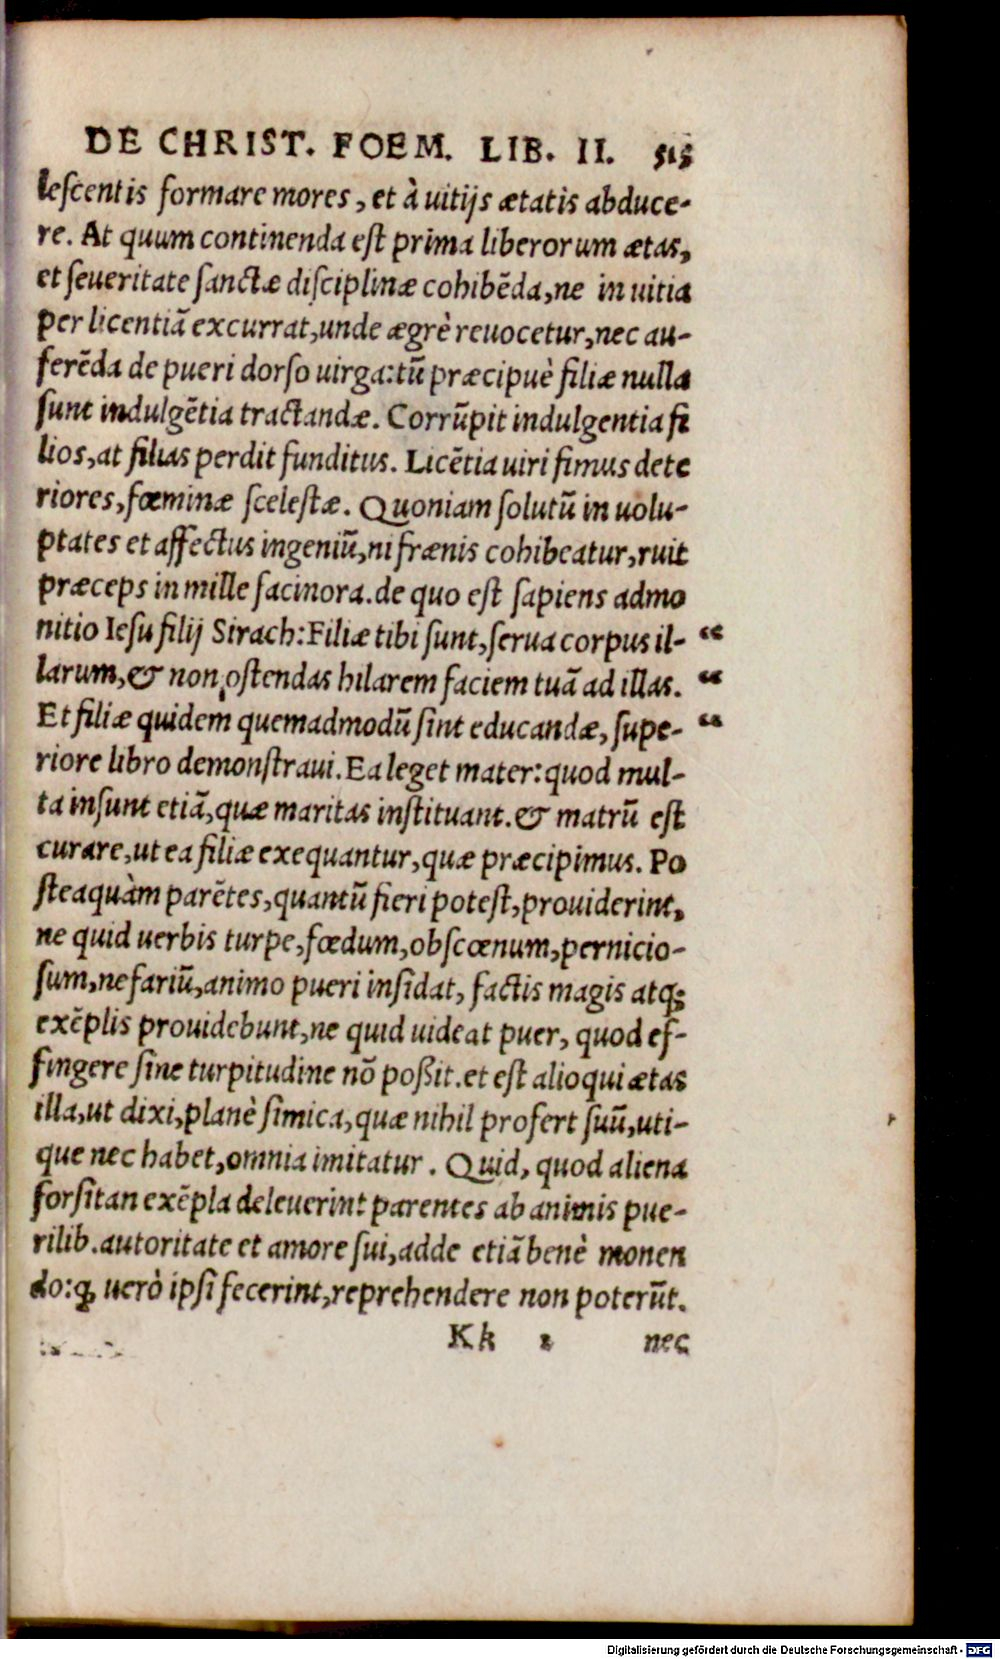 DE CHRIST. FOEM. LIB. II. 515
leſcentis formare mores, et à uitijs ætatis abduce-
re. At quum continenda est prima liberorum ætas,
et ſeueritate ſanctæ diſciplinæ cohibẽda, ne in uitia
per licentiã excurrat, unde ægrè reuocetur, nec au-
ferẽda de pueri dorſo uirga: tũ præcipuè filiæ nulla
ſunt indulgẽtia tractandæ. Corrũpit indulgentia fi
lios, at filias perdit funditus. Licẽtia uiri fimus dete
riores, fœminæ ſceleſtæ. Quoniam ſolutũ in uolu-
ptates et affectus ingeniũ, ni frænis cohibeatur, ruit
præceps in mille facinora. de quo eſt ſapiens admo
nitio Ieſu filij Sirach: Filiæ tibi ſunt, ſerua corpus il- “
larum, & non oſtendas hilarem faciem tuã ad illas. “
Et filiæ quidem quemadmodũ ſint educandæ, ſupe- “
riore libro demonſtraui. Ea leget mater: quod mul-
ta inſunt etiã, quæ maritas inſtituant. & matrũ eſt
curare, ut ea filiæ exequantur, quæ præcipimus. Po
ſteaquàm parẽtes, quantũ fieri poteſt, prouiderint,
ne quid uerbis turpe, fœdum, obſcœnum, pernicio-
ſum, nefariũ, animo pueri inſidat, factis magis atq;
exẽplis prouidebunt, ne quid uideat puer, quod ef-
fingere ſine turpitudine nõ poßit. et eſt alioqui ætas
illa, ut dixi, planè ſimica, quæ nihil profert ſuũ, uti-
que nec habet, omnia imitatur. Quid, quod aliena
forſitan exẽpla deleuerint parentes ab animis pue-
rilib. autoritate et amore ſui, adde etiã benè monen
do: ꝙ uerò ipſi fecerint, reprehendere non poterũt.
Kk 2 nec
Digitalisierung gefördert durch die Deutsche Forschungsgemeinschaft - DFG